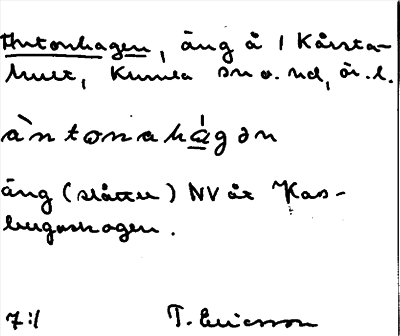 Antonhagen, äng å 1 Kårsta-
hult, Kumla sn o. hd, ör. l.
àntonahágən
äng (slåtter) NV åt Kas-
bergashagen.
7:1 T. Ericsson